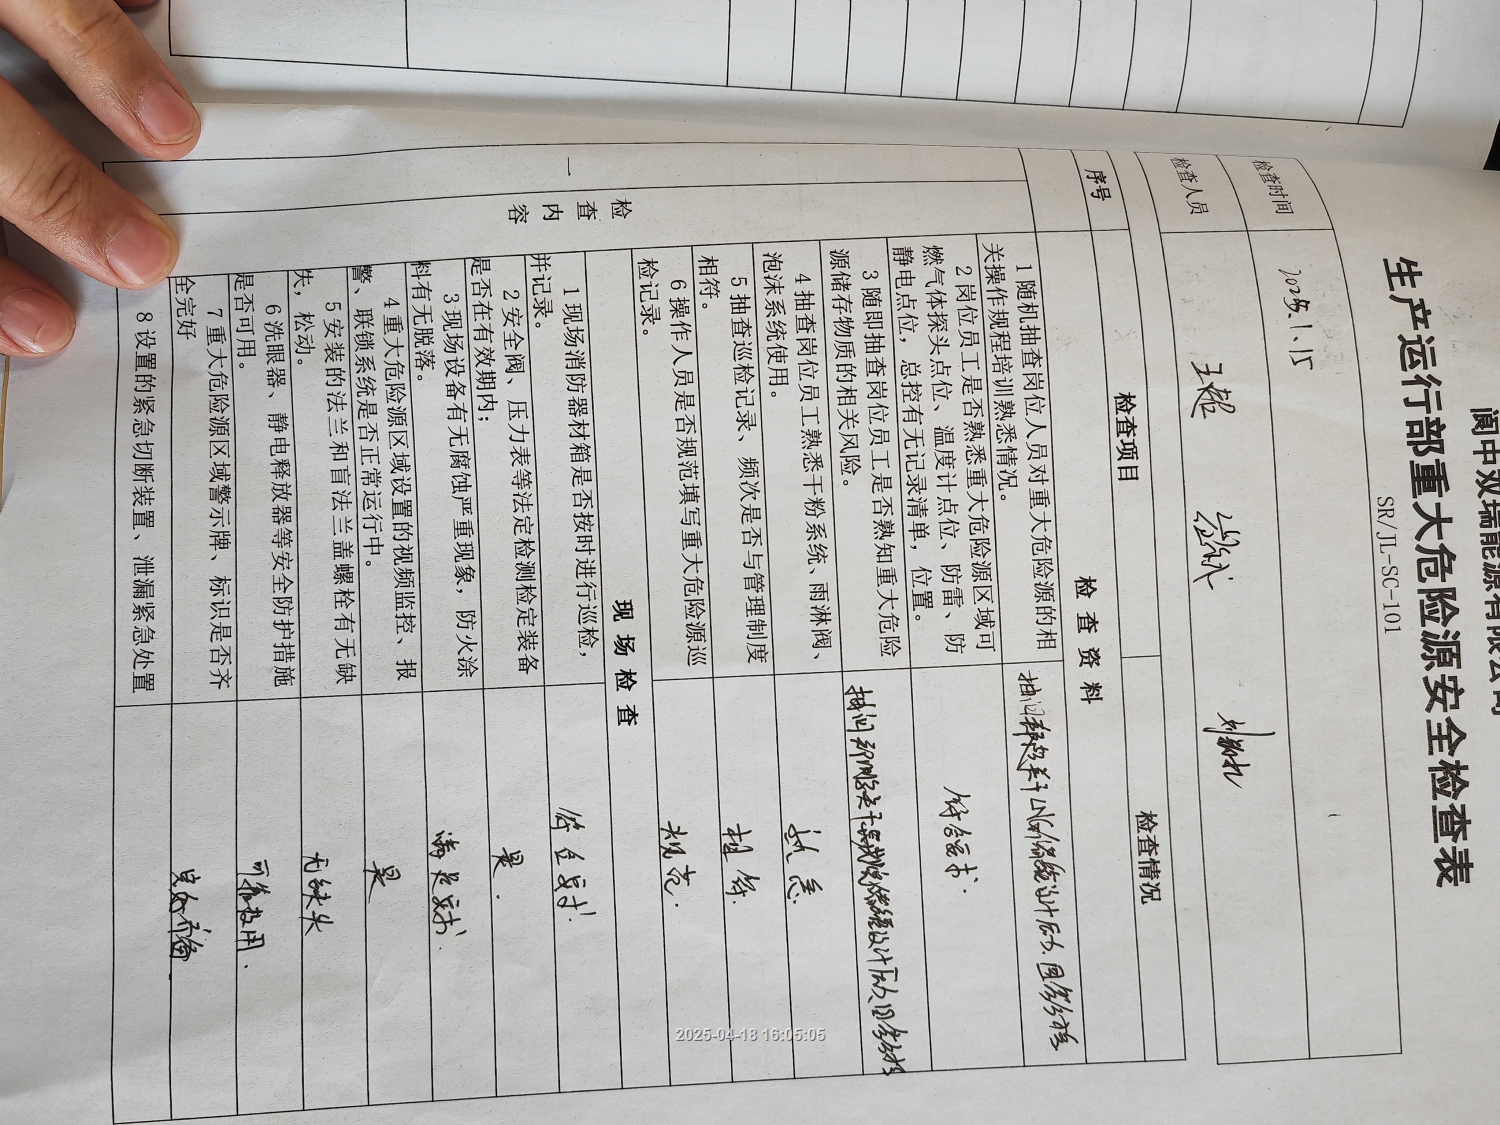 阆中双瑞能源有限公司
生产运行部重大危险源安全检查表
SR/JL-SC-101
检查时间 2025.1.15
检查人员 王超
序号 检查项目 检查情况
一
检查内容
检查资料
1 随机抽查岗位人员对重大危险源的相
关操作规程培训熟悉情况。
2 岗位员工是否熟悉重大危险源区域可
燃气体探头点位、温度计点位、防雷、防
静电点位，总控有无记录清单，位置。
符合要求.
3 随即抽查岗位员工是否熟知重大危险
源储存物质的相关风险。
4 抽查岗位员工熟悉干粉系统、雨淋阀、
泡沫系统使用。
熟悉.
5 抽查巡检记录、频次是否与管理制度
相符。
相符.
6 操作人员是否规范填写重大危险源巡
检记录。
规范.
现场检查
1 现场消防器材箱是否按时进行巡检，
并记录。
2 安全阀、压力表等法定检测检定装备
是否在有效期内；
是.
3 现场设备有无腐蚀严重现象，防火涂
料有无脱落。
满足要求.
4 重大危险源区域设置的视频监控、报
警、联锁系统是否正常运行中。
是
5 安装的法兰和盲法兰盖螺栓有无缺
失，松动。
无缺失
6 洗眼器、静电释放器等安全防护措施
是否可用。
可靠投用.
7 重大危险源区域警示牌、标识是否齐
全完好
8 设置的紧急切断装置、泄漏紧急处置
2025-04-18 16:05:05